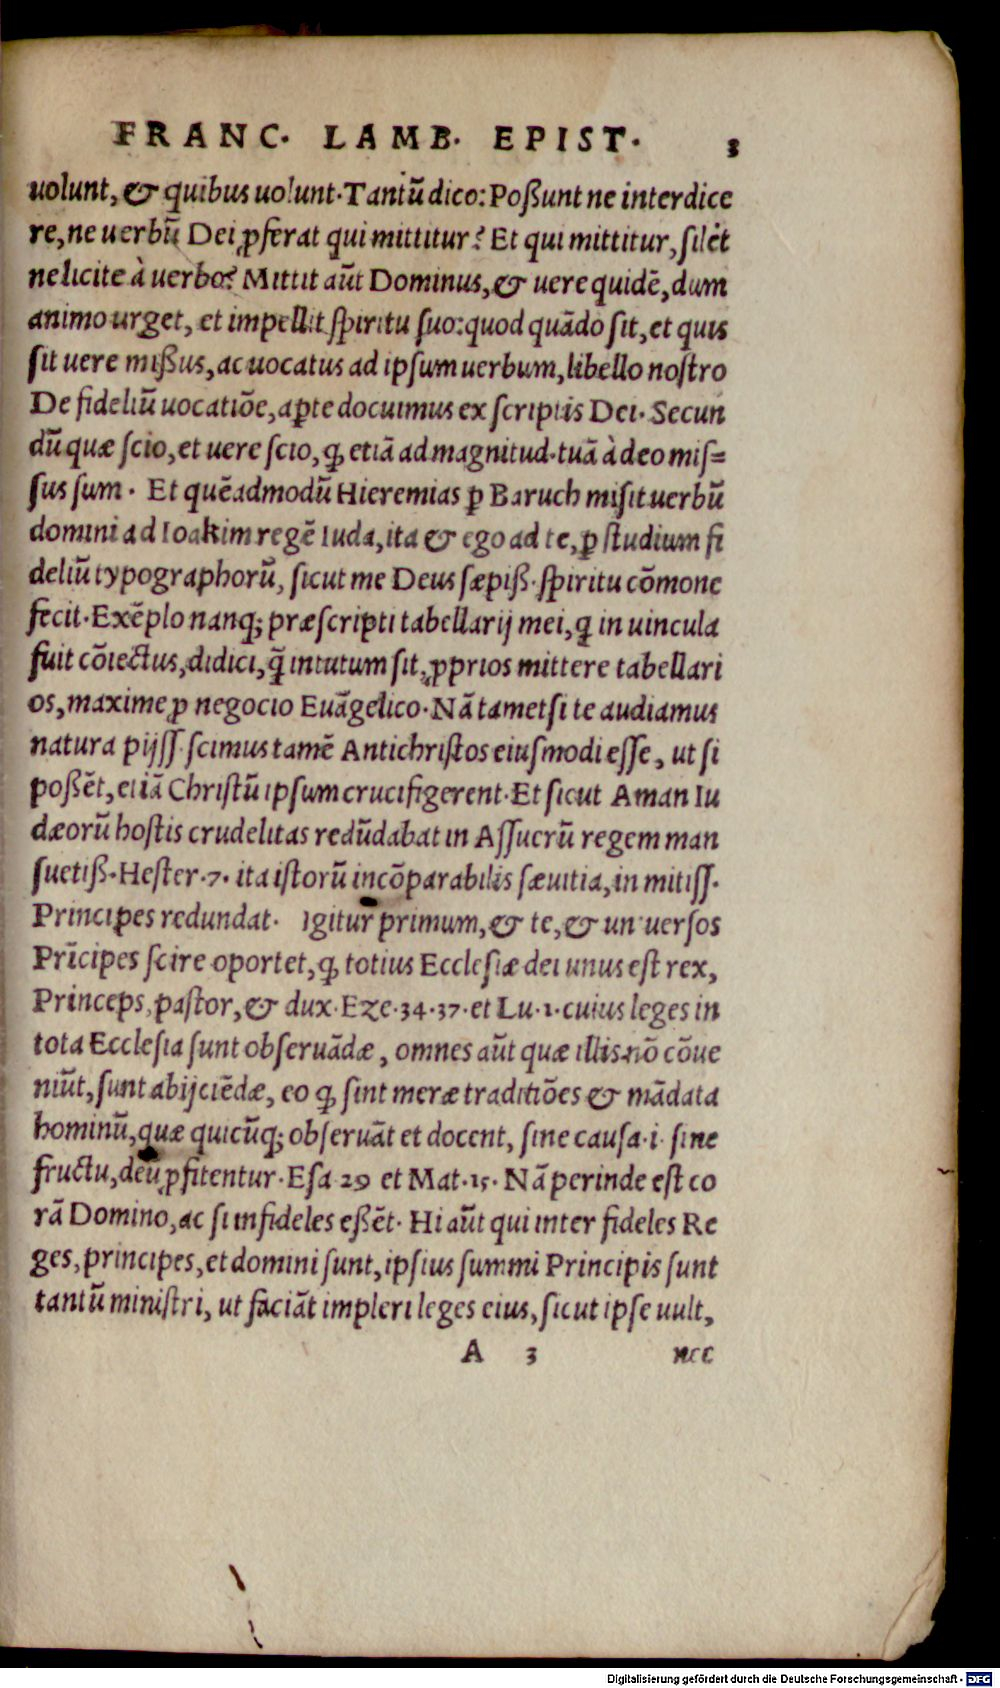 FRANC. LAMB. EPIST. 3
uolunt, & quibus uolunt. Tantũ dico: Poßunt ne interdice
re, ne uerbũ Dei ꝓferat qui mittitur? Et qui mittitur, silèt
ne licite à uerbo? Mittit aũt Dominus, & uere quidẽ, dum
animo urget, et impellit spiritu suo: quod quãdo sit, et quis
sit uere mißus, ac uocatus ad ipsum uerbum, libello nostro
De fideliũ uocatiõe, aꝑte docuimus ex scriptis Dei. Secun
dũ quæ scio, et uere scio, ꝙ etiã ad magnitud. tuã à deo mis=
sus sum. Et quẽadmodũ Hieremias ꝑ Baruch misit uerbũ
domini ad Ioakim regẽ Iuda, ita & ego ad te, ꝑ studium fi
deliũ typographorũ, sicut me Deus sæpiß. spiritu cõmone
fecit. Exẽplo nanq; præscripti tabellarij mei, ꝗ in uincula
fuit cõiectus, didici, ꝗ̃ intutum sit, ꝓprios mittere tabellari
os, maxime ꝑ negocio Euãgelico. Nã tametsi te audiamus
natura pijss. scimus tamẽ Antichristos eiusmodi esse, ut si
poßẽt, etiã Christũ ipsum crucifigerent. Et sicut Aman Iu
dæorũ hostis crudelitas redũdabat in Assuerũ regem man
suetiß. Hester. 7. ita istorũ incõparabilis sæuitia, in mitiss.
Principes redundat. Igitur primum, & te, & uniuersos
Prĩcipes scire oportet, ꝙ totius Ecclesiæ dei unus est rex,
Princeps, pastor, & dux. Eze. 34. 37. et Lu. 1. cuius leges in
tota Ecclesia sunt obseruãdæ, omnes aũt quæ illis nõ cõue
niũt, sunt abijciẽdæ, eo ꝙ sint meræ traditiões & mãdata
hominũ, quæ quicũq; obseruãt et docent, sine causa .i. sine
fructu, deũ ꝓfitentur. Esa. 29 et Mat. 15. Nã perinde est co
rã Domino, ac si infideles eßẽt. Hi aũt qui inter fideles Re
ges, principes, et domini sunt, ipsius summi Principis sunt
tantũ ministri, ut faciãt impleri leges eius, sicut ipse uult,
A 3 nec
Digitalisierung gefördert durch die Deutsche Forschungsgemeinschaft - DFG